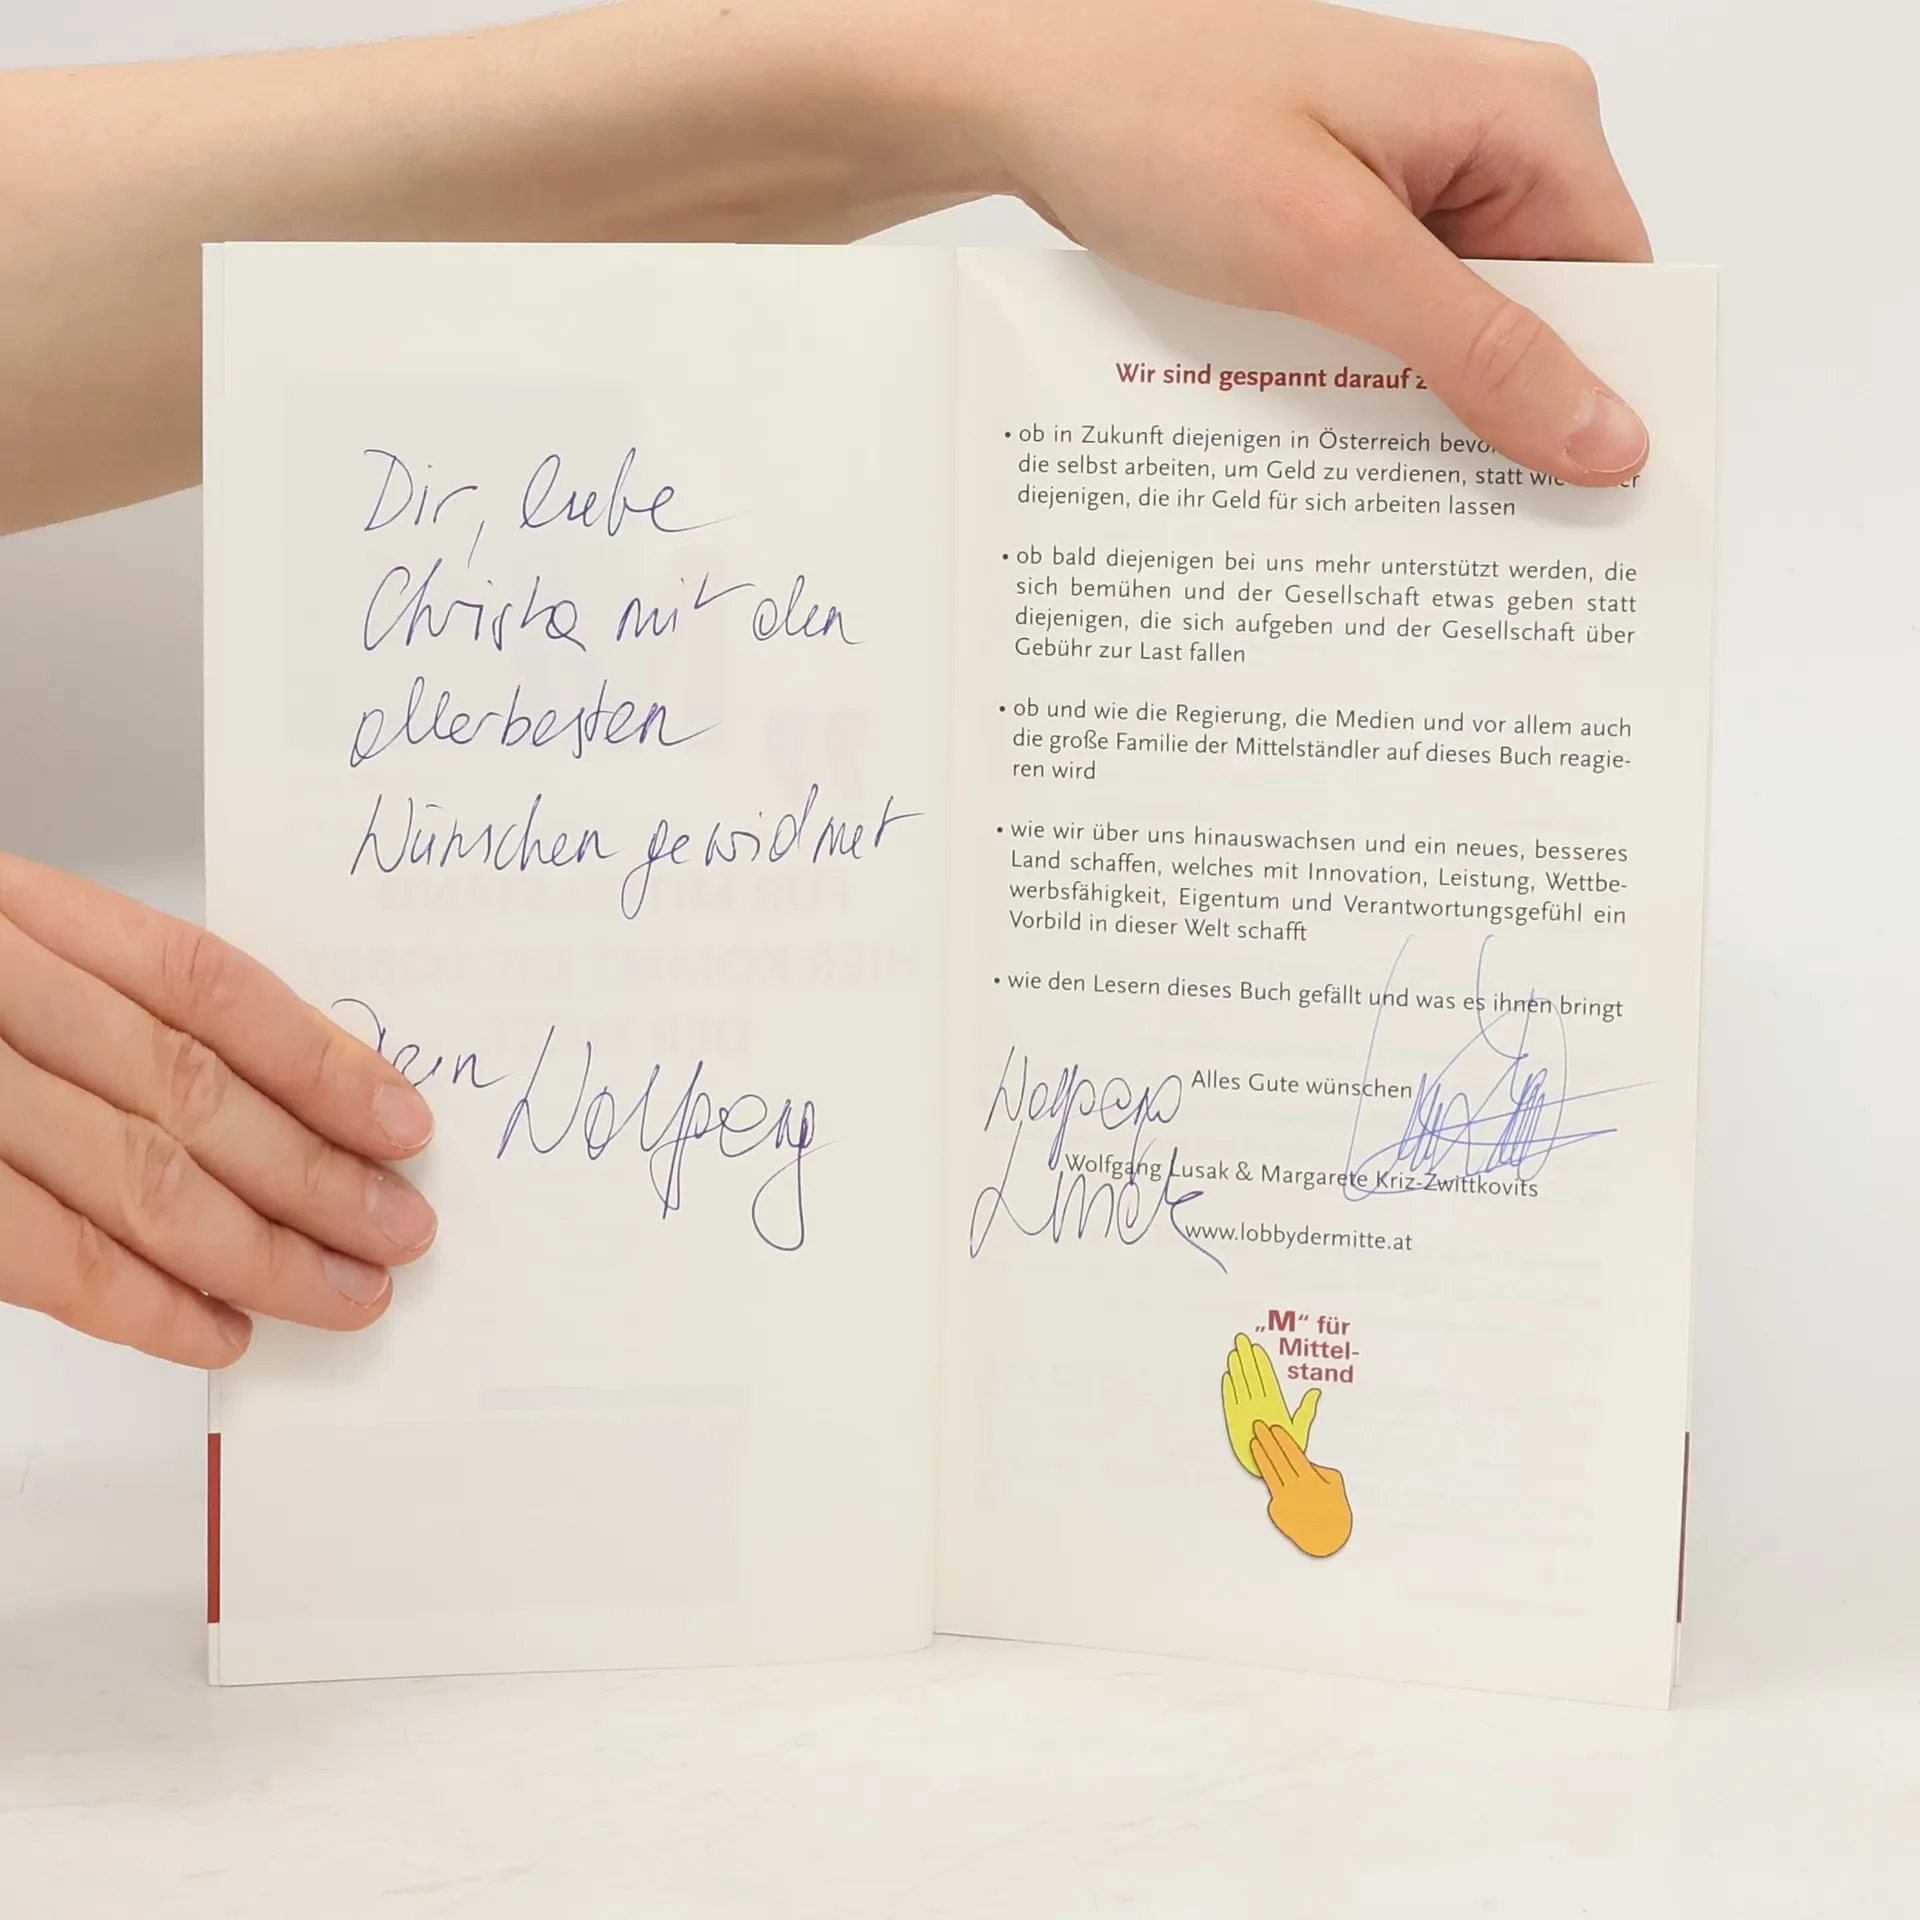 Dir, liebe
Christa mit den
allerbesten
Wünschen gewidmet
Dein Wolfgang
Wir sind gespannt darauf
• ob in Zukunft diejenigen in Österreich
die selbst arbeiten, um Geld zu verdienen, statt
diejenigen, die ihr Geld für sich arbeiten lassen
• ob bald diejenigen bei uns mehr unterstützt werden, die
sich bemühen und der Gesellschaft etwas geben statt
diejenigen, die sich aufgeben und der Gesellschaft über
Gebühr zur Last fallen
• ob und wie die Regierung, die Medien und vor allem auch
die große Familie der Mittelständler auf dieses Buch reagie-
ren wird
• wie wir über uns hinauswachsen und ein neues, besseres
Land schaffen, welches mit Innovation, Leistung, Wettbe-
werbsfähigkeit, Eigentum und Verantwortungsgefühl ein
Vorbild in dieser Welt schafft
• wie den Lesern dieses Buch gefällt und was es ihnen bringt
Alles Gute wünschen
Wolfgang Lusak
Wolfgang Lusak & Margarete Kriz-Zwittkovits
www.lobbydermitte.at
„M“ für
Mittel-
stand